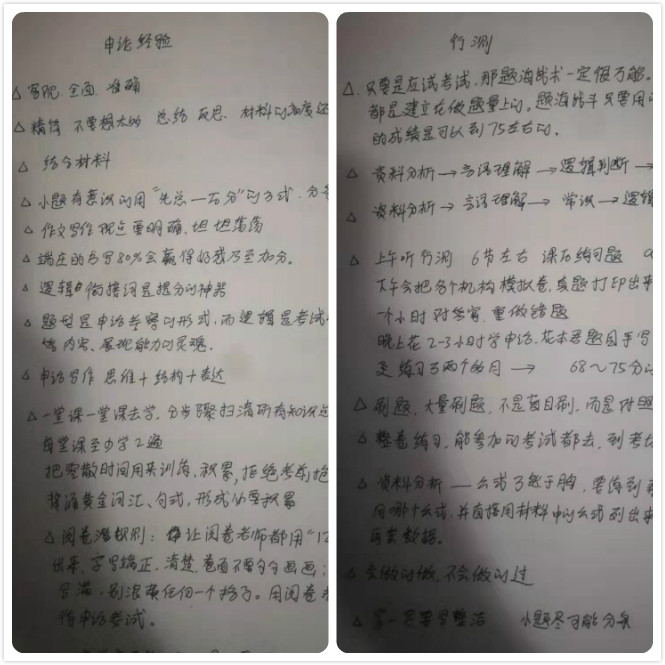 申论经验
△ 客观 全面 准确
△ 精简 不要想太多 总结 反思 材料的高度还
△ 结合材料
△ 小题有意识的用"先总一后分"的方式，分
△ 作文写作观点要明确，坦坦荡荡
△ 端庄的书写80%会赢得好感乃至加分。
△ 逻辑 衔接词是提分的神器
△ 题型是申论考察的形式，而逻辑是考试
内容、展现能力的灵魂。
△ 申论写作 思维+结构+表达
△ 一堂课一堂课去学，分步骤扫清所有知识
每堂课至少学2遍
把零散时间用来训练，积累，拒绝考前抱
背诵黄金词汇、句式，形成
△ 阅卷潜规则： 让阅卷老师都用"1
出来，字写端正，清楚，卷面不要勾勾画画；
写满，别浪费任何一个格子。用阅卷
待申论考试。
行测
△ 只要是应试考试，那题海战术一定很万能。
都是建立在做题量上的。题海战术只要用
的成绩是可以到75左右的。
△ 资料分析→言语理解→逻辑判断→
△ 资料分析→言语理解→ 常识→逻辑
△ 上午听行测 6节左右 课后练习题
下午会把各个机构模拟卷，真题打印出来
一个小时对答案，重做错题
晚上花2-3小时学申论，花 手写
练习了两个多月→ 68～75分
△ 刷题，大量刷题，不是盲目刷，而是
△ 整卷练习，能参加的考试都去，到考
△ 资料分析——公式了然于胸，要做到
用哪个公式，并直接用材料中的公式列出来
再套数据。
△ 会做的做，不会做的过
△ 字一定要写整洁 小题尽可能分条